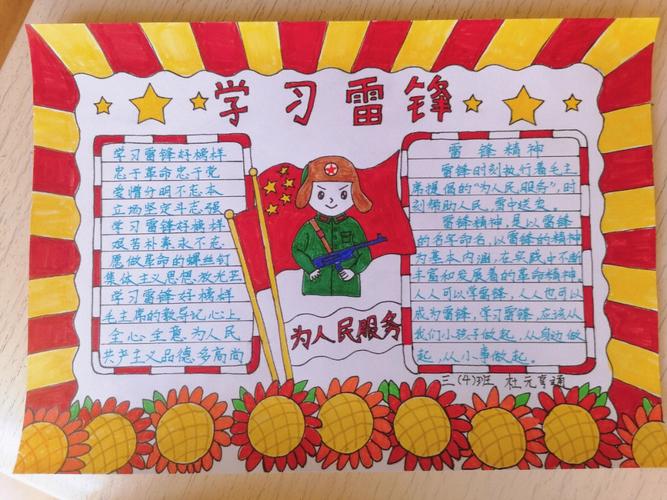 学习雷锋
学习雷锋好榜样
忠于革命忠于党
爱憎分明不忘本
立场坚定斗志强
学习雷锋好榜样
艰苦朴素永不忘
愿做革命的螺丝钉
集体主义思想放光芒
学习雷锋好榜样
毛主席的教导记心上
全心全意为人民
共产主义品德多高尚
为人民服务
雷锋精神
雷锋时刻执行着毛主
席提倡的“为人民服务”,时
刻帮助人民,雪中送炭。
雷锋精神,是以雷锋
的名字命名,以雷锋的精神
为基本内涵,在实践中不断
丰富和发展着的革命精神
人人可以学雷锋,人人也可以
成为雷锋,学习雷锋,应该从
我们小孩子做起,从身边做
起,从小事做起。
三(4)班 杜元